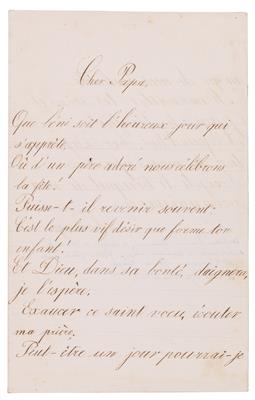 Cher Papa,
Que béni soit l'heureux jour qui
s'apprête,
Où d'un père adoré nous célébrons
la fête!
Puisse-t-il revenir souvent.
C'est le plus vif désir que forme ton
enfant!
Et Dieu, dans sa bonté, daignera,
je l'espère,
Exaucer ce saint voeu, écouter
ma prière.
Peut-être un jour pourrai-je